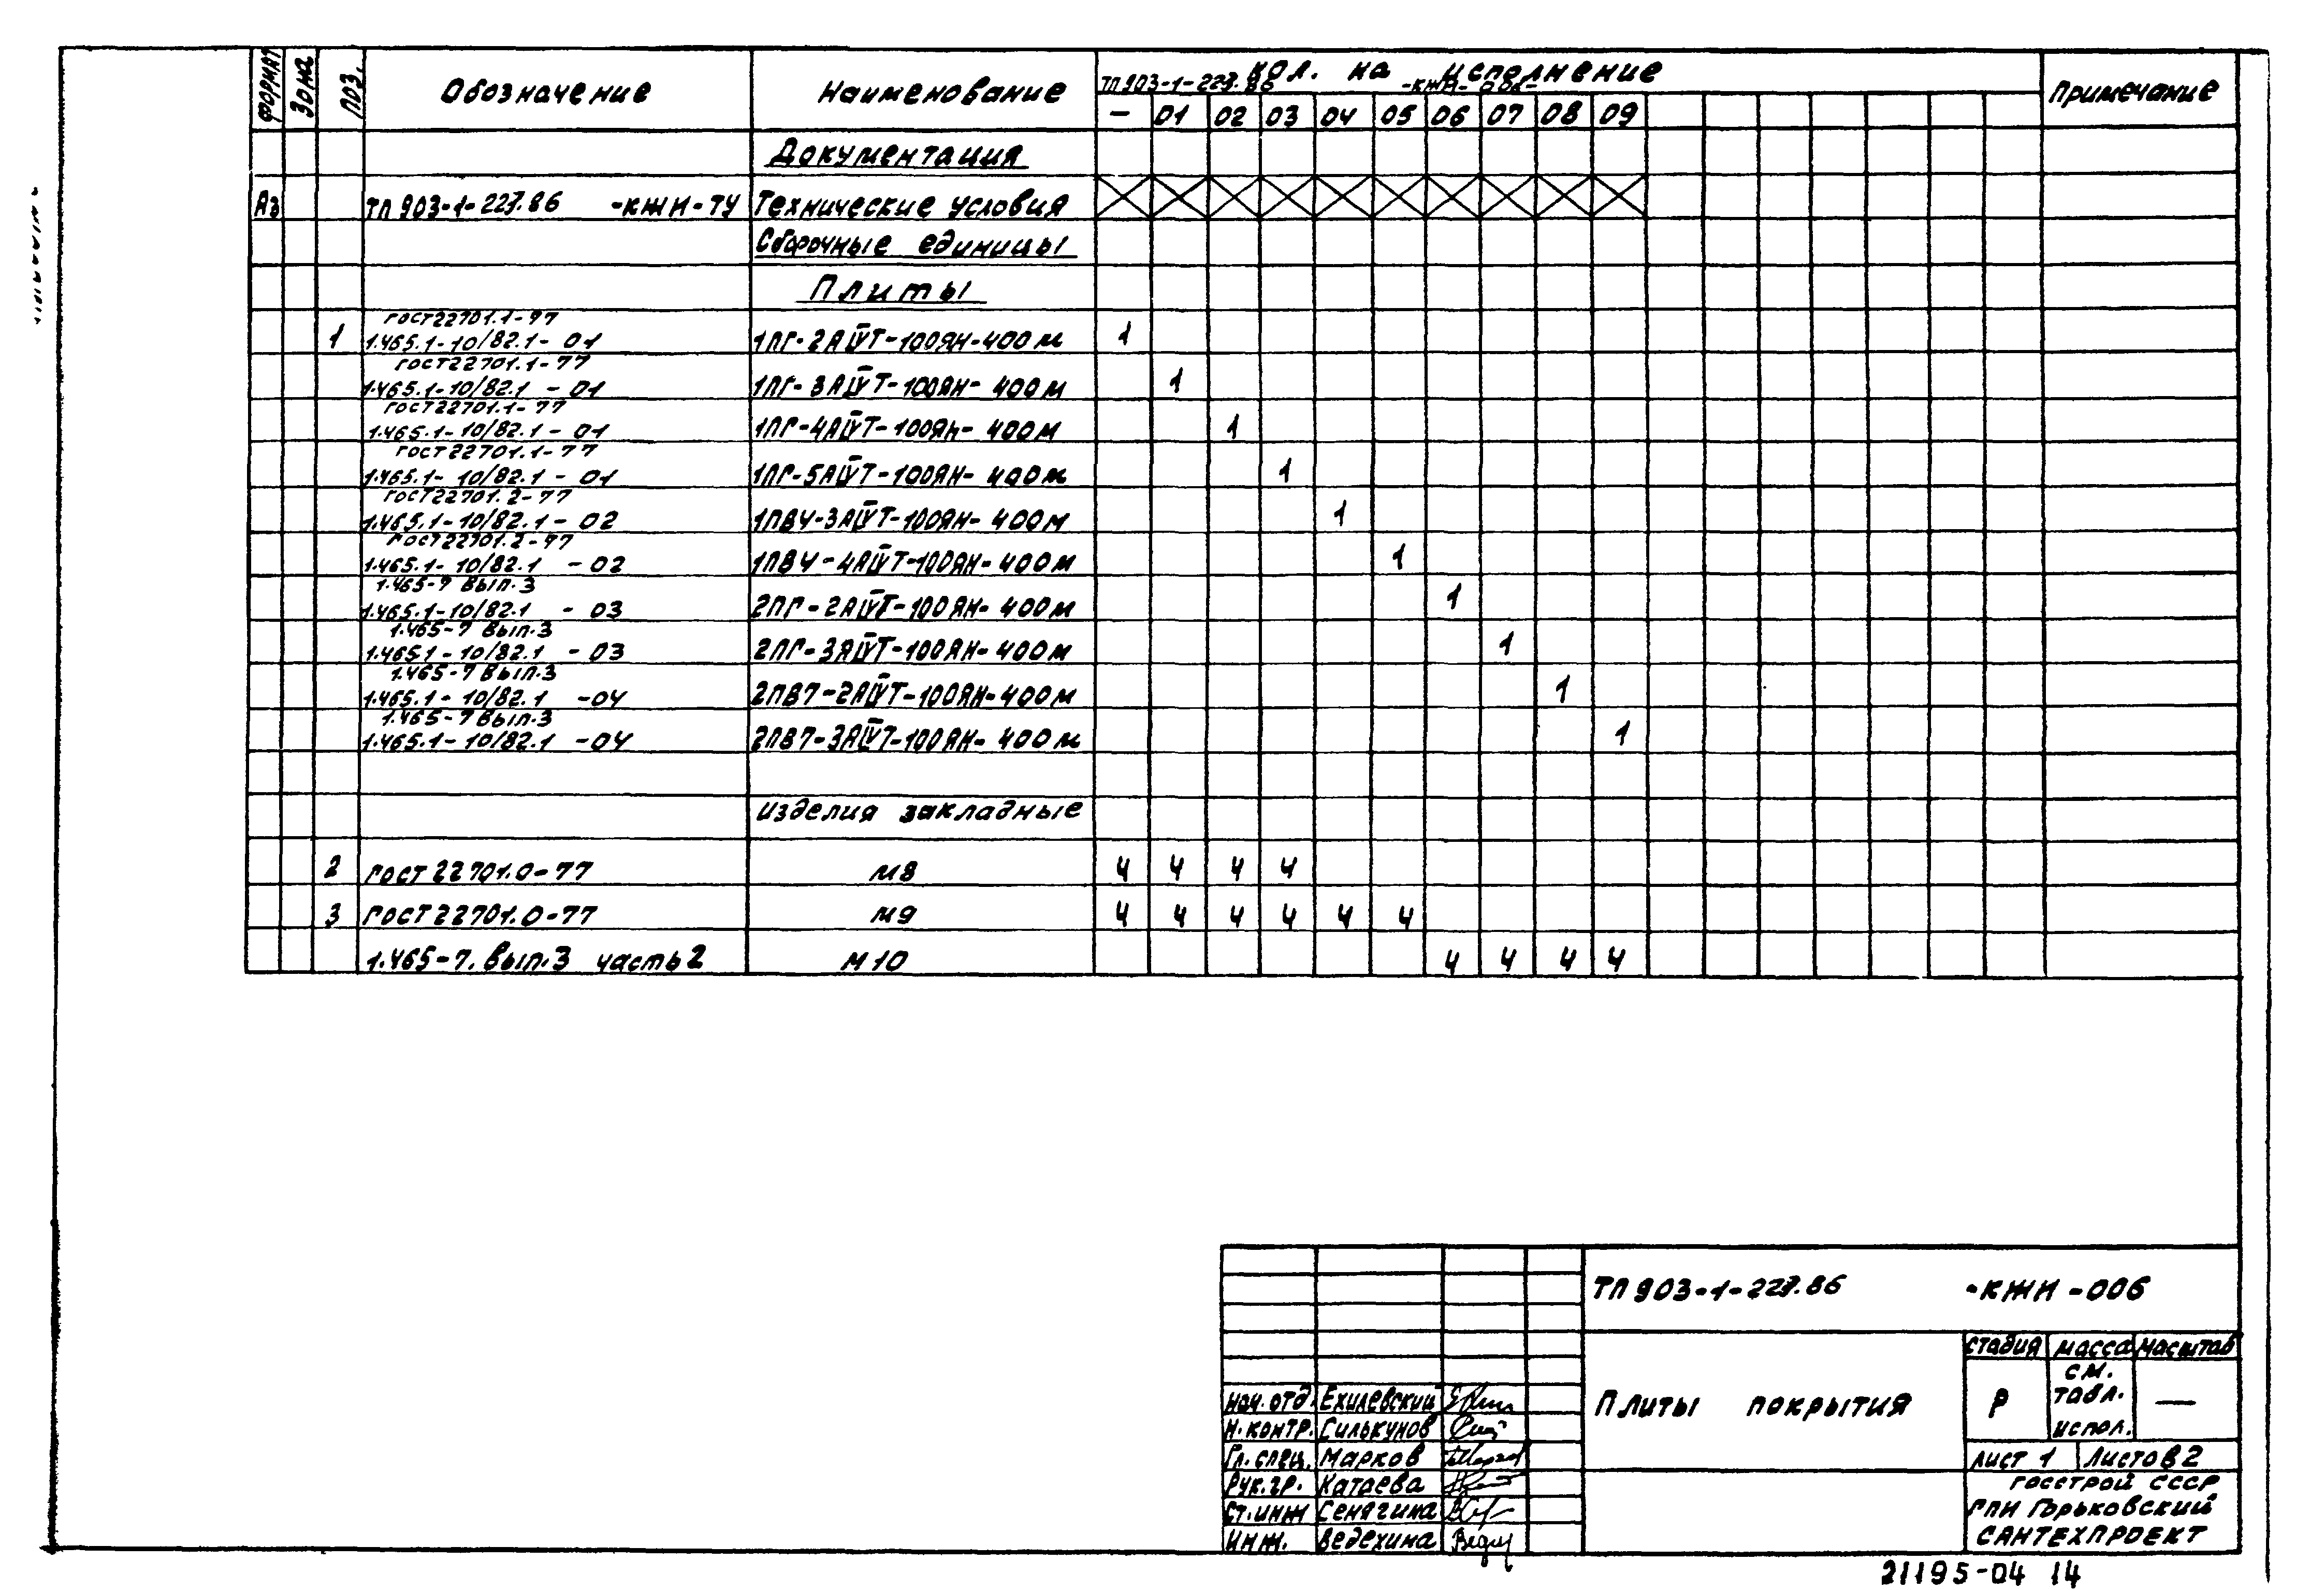 ФОРМАТ Зона ПОЗ. Обозначение Наименование кол. на исполнение Примечание
ТП 903-1-227.86 -КЖИ-006-
— 01 02 03 04 05 06 07 08 09
Документация
А3 ТП 903-1-227.86 -КЖИ-ТУ Технические условия
Сборочные единицы
Плиты
ГОСТ 22701.1-77
1 1.465.1-10/82.1-01 1ПГ-2АIVТ-100ЯН-400м 1
ГОСТ 22701.1-77
1.465.1-10/82.1-01 1ПГ-3АIVТ-100ЯН-400м 1
ГОСТ 22701.1-77
1.465.1-10/82.1-01 1ПГ-4АIVТ-100ЯН-400м 1
ГОСТ 22701.1-77
1.465.1-10/82.1-01 1ПГ-5АIVТ-100ЯН-400м 1
ГОСТ 22701.2-77
1.465.1-10/82.1-02 1ПВ4-3АIVТ-100ЯН-400м 1
ГОСТ 22701.2-77
1.465.1-10/82.1 -02 1ПВ4-4АIVТ-100ЯН-400м 1
1.465-7 вып.3
1.465.1-10/82.1 -03 2ПГ-2АIVТ-100ЯН-400м 1
1.465-7 вып.3
1.465.1-10/82.1 -03 2ПГ-3АIVТ-100ЯН-400м 1
1.465-7 вып.3
1.465.1-10/82.1 -04 2ПВ7-2АIVТ-100ЯН-400м 1
1.465-7 вып.3
1.465.1-10/82.1 -04 2ПВ7-3АIVТ-100ЯН-400м 1
изделия закладные
2 ГОСТ 22701.0-77 М8 4 4 4 4
3 ГОСТ 22701.0-77 М9 4 4 4 4 4 4
1.465-7. вып.3 часть 2 М10 4 4 4 4
ТП 903-1-227.86 -КЖИ-006
Плиты покрытия
стадия масса масштаб
Р см. табл. испол. —
лист 1 Листов 2
нач. отд. Ехилевский
Н. контр. Силькунов
Гл. спец. Марков
Рук. гр. Катаева
Ст. инж Сенягина
Инж. Ведехина
госстрой СССР
ГПИ Горьковский
САНТЕХПРОЕКТ
21195-04 14